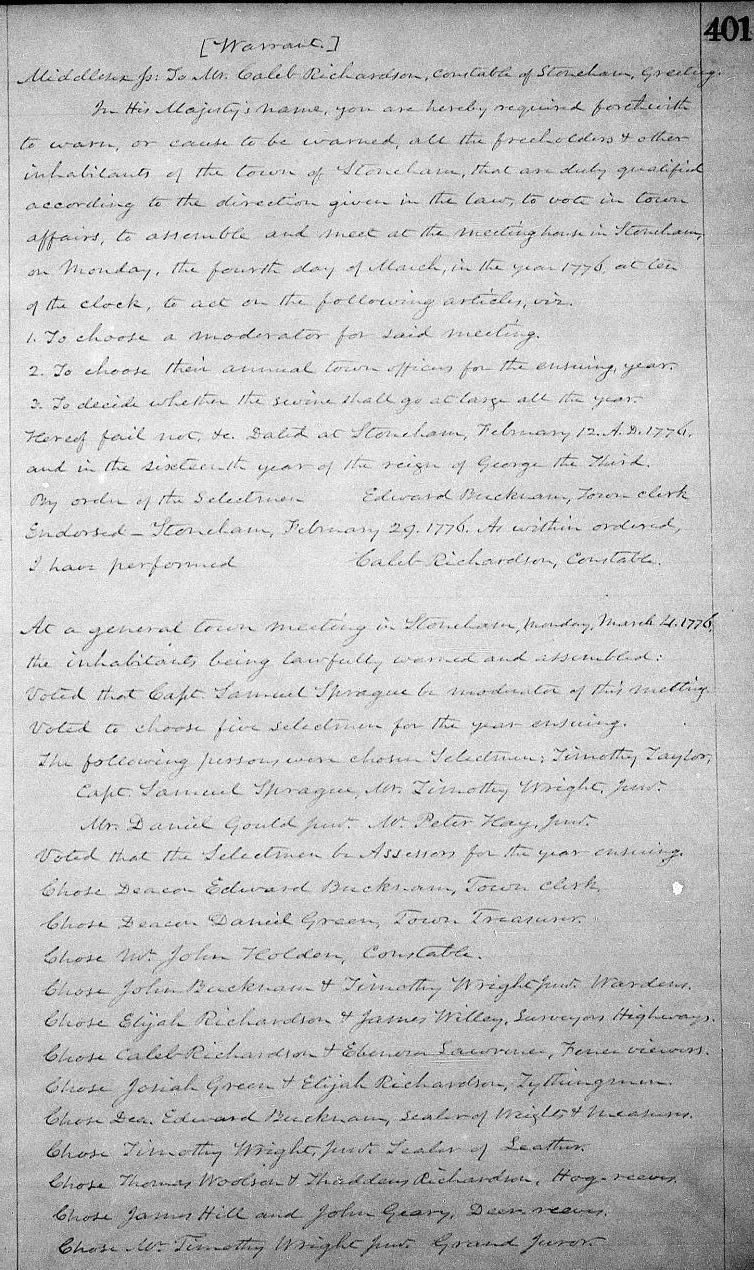 401
[Warrant.]
Middlesex ss: To Mr. Caleb Richardson, constable of Stoneham, Greeting.
In His Majesty's name, you are hereby required forthwith
to warn, or cause to be warned, all the freeholders & other
inhabitants of the town of Stoneham, that are duly qualified
according to the direction given in the law, to vote in town
affairs, to assemble and meet at the meeting house in Stoneham,
on Monday, the fourth day of March, in the year 1776, at ten
of the clock, to act on the following articles, viz.
1. To choose a moderator for said meeting.
2. To choose their annual town officers for the ensuing year.
3. To decide whether the swine shall go at large all the year.
Hereof fail not, &c. Dated at Stoneham, February 12. A.D. 1776,
and in the sixteenth year of the reign of George the Third.
By order of the Selectmen Edward Bucknam, Town clerk
Endorsed - Stoneham, February 29. 1776. As within ordered,
I have performed Caleb Richardson, Constable.
At a general town meeting in Stoneham, Monday, March 4. 1776,
the inhabitants being lawfully warned and assembled:
Voted that Capt. Samuel Sprague be moderator of this meeting
Voted to choose five selectmen for the year ensuing.
The following persons were chosen Selectmen; Timothy Taylor,
Capt. Samuel Sprague, Mr. Timothy Wright, Junr.
Mr. Daniel Gould Junr. Mr. Peter Hay, Junr.
Voted that the Selectmen be Assessors for the year ensuing.
Chose Deacon Edward Bucknam, Town clerk,
Chose Deacon Daniel Green, Town Treasurer.
Chose Mr. John Holden, Constable.
Chose John Bucknam & Timothy Wright Junr. Wardens.
Chose Elijah Richardson & James Willey, Surveyors Highways.
Chose Caleb Richardson & Ebenezer Lawrence, Fence viewers.
Chose Josiah Green & Elijah Richardson, Tythingmen.
Chose Dea. Edward Bucknam, Sealer of Weights & Measures.
Chose Timothy Wright, Junr. Sealer of Leather.
Chose Thomas Woolson & Thaddeus Richardson, Hog-reeves.
Chose James Hill and John Geary, Deer-reeves.
Chose Mr. Timothy Wright Junr. Grand Juror.